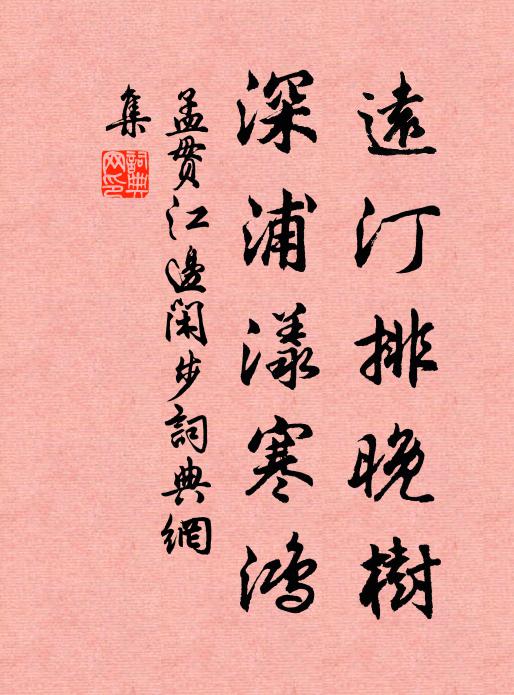 遠汀排晚樹
深浦漾寒鴻
孟貫江邊閑步詞典網
集
詞典
网印